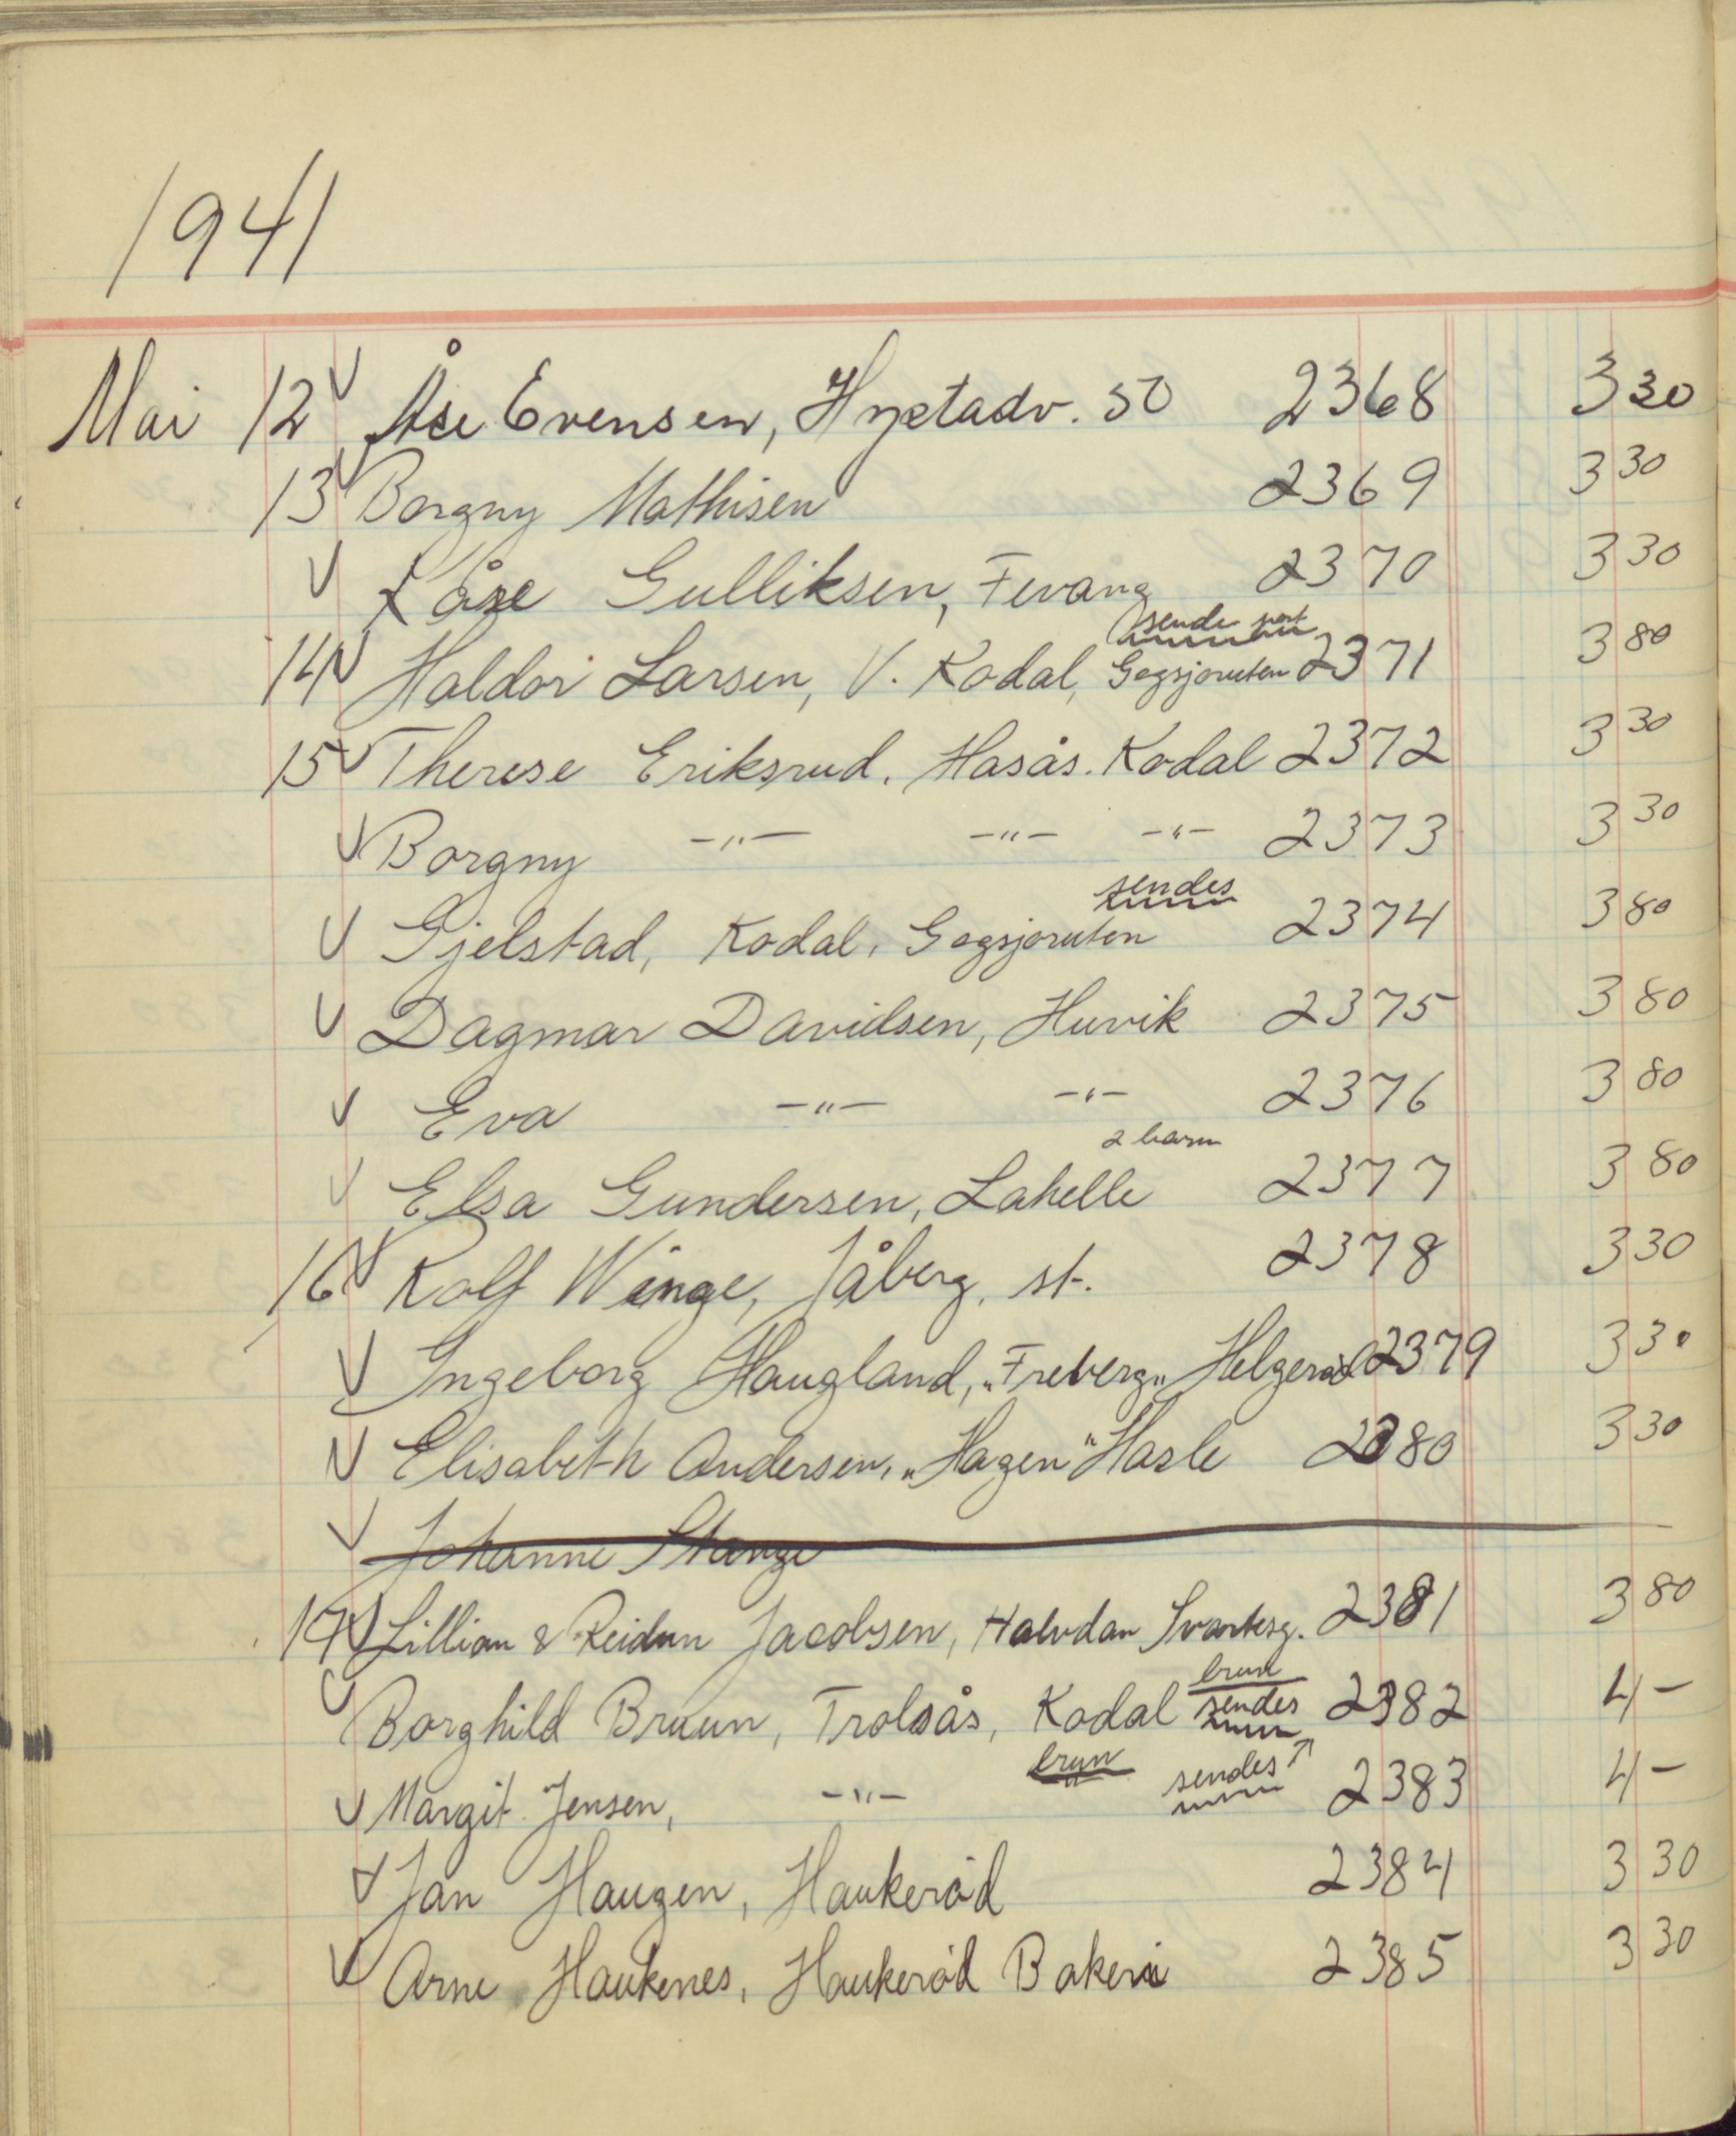 1941
Mai 12 √ Åse Evensen, Hystadv. 50 2368 3 30
13 √ Borgny Mathisen 2369 3 30
√ Kåre Gulliksen, Fevang 2370 3 30
sende post
14 √ Haldor Larsen, V. Kodal, Gogsjøruten 2371 3 80
15 √ Therese Eriksrud, Hasås. Kodal 2372 3 30
√ Borgny -"- -"- -"- 2373 3 30
sendes
√ Gjelstad, Kodal, Gogsjøruten 2374 3 80
√ Dagmar Davidsen, Huvik 2375 3 80
√ Eva -"- -"- 2376 3 80
2 barn
√ Elsa Gundersen, Lahelle 2377 3 80
16 √ Rolf Winge, Jåberg. st. 2378 3 30
√ Ingeborg Haugland, "Freberg" Helgerød 2379 3 30
√ Elisabeth Andersen, "Hagen" Hasle 2380 3 30
√ Johanne Stange
17 √ Lillian & Reidun Jacobsen, Halvdan Svartesg. 2381 3 80
brun
√ Borghild Bruun, Trolsås, Kodal sendes 2382 4 –
brun
√ Margit Jensen, -"- sendes ↑ 2383 4 –
√ Jan Haugen, Haukerød 2384 3 30
√ Arne Haukenes, Haukerød Bakeri 2385 3 30